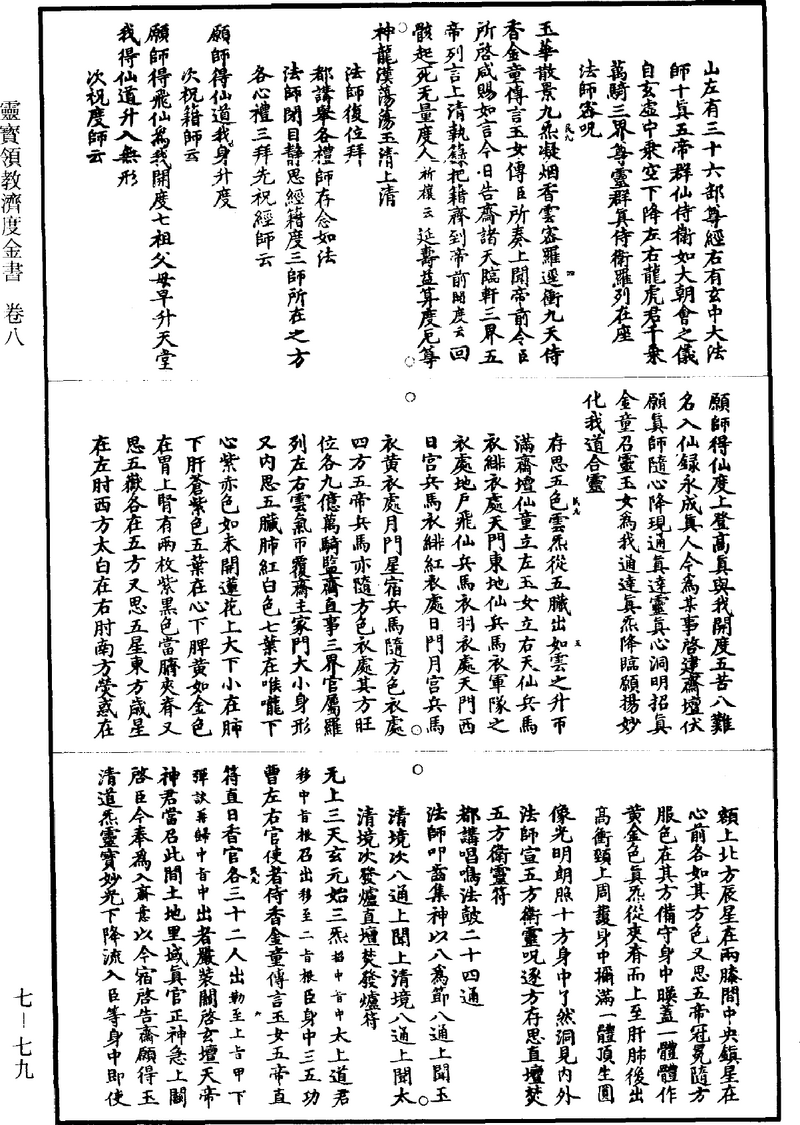 山左有三十六部尊經右有玄中大法
師十真五帝群仙侍衛如大朝會之儀
自玄虛中乘空下降左右龍虎君千乘
萬騎三界尊靈群真侍衛羅列在座
法師密呪
玉華散景九炁凝烟香雲密羅逕衝九天侍
香金童傳言玉女傳臣所奏上聞帝前令臣
所啓咸賜如言今日告齋諸天臨軒三界五
帝列言上清執籙把籍齊到帝前開度云回
骸起死无量度人祈禳云延壽益算度厄尊
神龍漢蕩蕩玉清上清
法師復位拜
都講舉各禮師存念如法
法師閉目靜思經籍度三師所在之方
各心禮三拜先祝經師云
願師得仙道我身升度
次祝籍師云
願師得飛仙為我開度七祖父母早升天堂
我得仙道升入無形
次祝度師云
願師得仙度上登高真與我開度五苦八難
名入仙録永成真人今為某事啓建齋壇伏
願真師隨心降現通真達靈真心洞明招真
金童召靈玉女為我通達真炁降臨願揚妙
化我道合靈
存思五色雲炁從五臟出如雲之升帀
滿齋壇仙童立左玉女立右天仙兵馬
衣緋衣處天門東地仙兵馬衣軍隊之
衣處地戶飛仙兵馬衣羽衣處天門西
日宮兵馬衣緋紅衣處日門月宮兵馬
衣黄衣處月門星宿兵馬隨方色衣處
四方五帝兵馬亦隨方色衣處其方旺
位各九億萬騎監齋直事三界官屬羅
列左右雲氣帀覆齋主家門大小身形
又內思五臟肺紅白色七葉在喉嚨下
心紫赤色如未開蓮花上大下小在肺
下肝蒼紫色五葉在心下脾黄如金色
在胃上腎有兩枚紫黑色當臍夾脊又
思五嶽各在五方又思五星東方歲星
在左肘西方太白在右肘南方熒惑在
額上北方辰星在兩膝間中央鎮星在
心前各如其方色又思五帝冠冕隨方
服色在其方備守身中暎蓋一體體作
黄金色真炁從夾脊而上至肝肺後出
高衝頸上周覆身中襵滿一體頂生圓
像光明朗照十方身中了然洞見內外
法師宣五方衛靈呪逐方存思直壇焚
五方衛靈符
都講唱鳴法鼓二十四通
法師叩齒集神以八為節八通上聞玉
清境次八通上聞上清境八通上聞太
清境次發爐直壇焚發爐符
无上三天玄元始三炁招中旨中太上道君
移中旨根召出移至二旨根臣身中三五功
曹左右官使者侍香金童傳言玉女五帝直
符直日香官各三十二人出勒至上旨甲下
彈訣再歸中旨中出者嚴裝關啓玄壇天帝
神君當召此間土地里域真官正神急上關
啓臣今奉為入齋意以今宿啓告齋願得玉
清道炁靈寶妙光下降流入臣等身中即使
靈寶領教濟度金書　卷八
七－七九